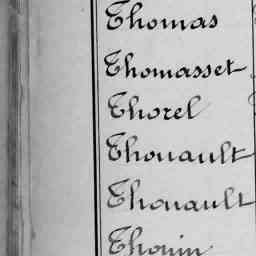 Thomas
Thomasset
Thorel
Thouault
Thouault
Thouin